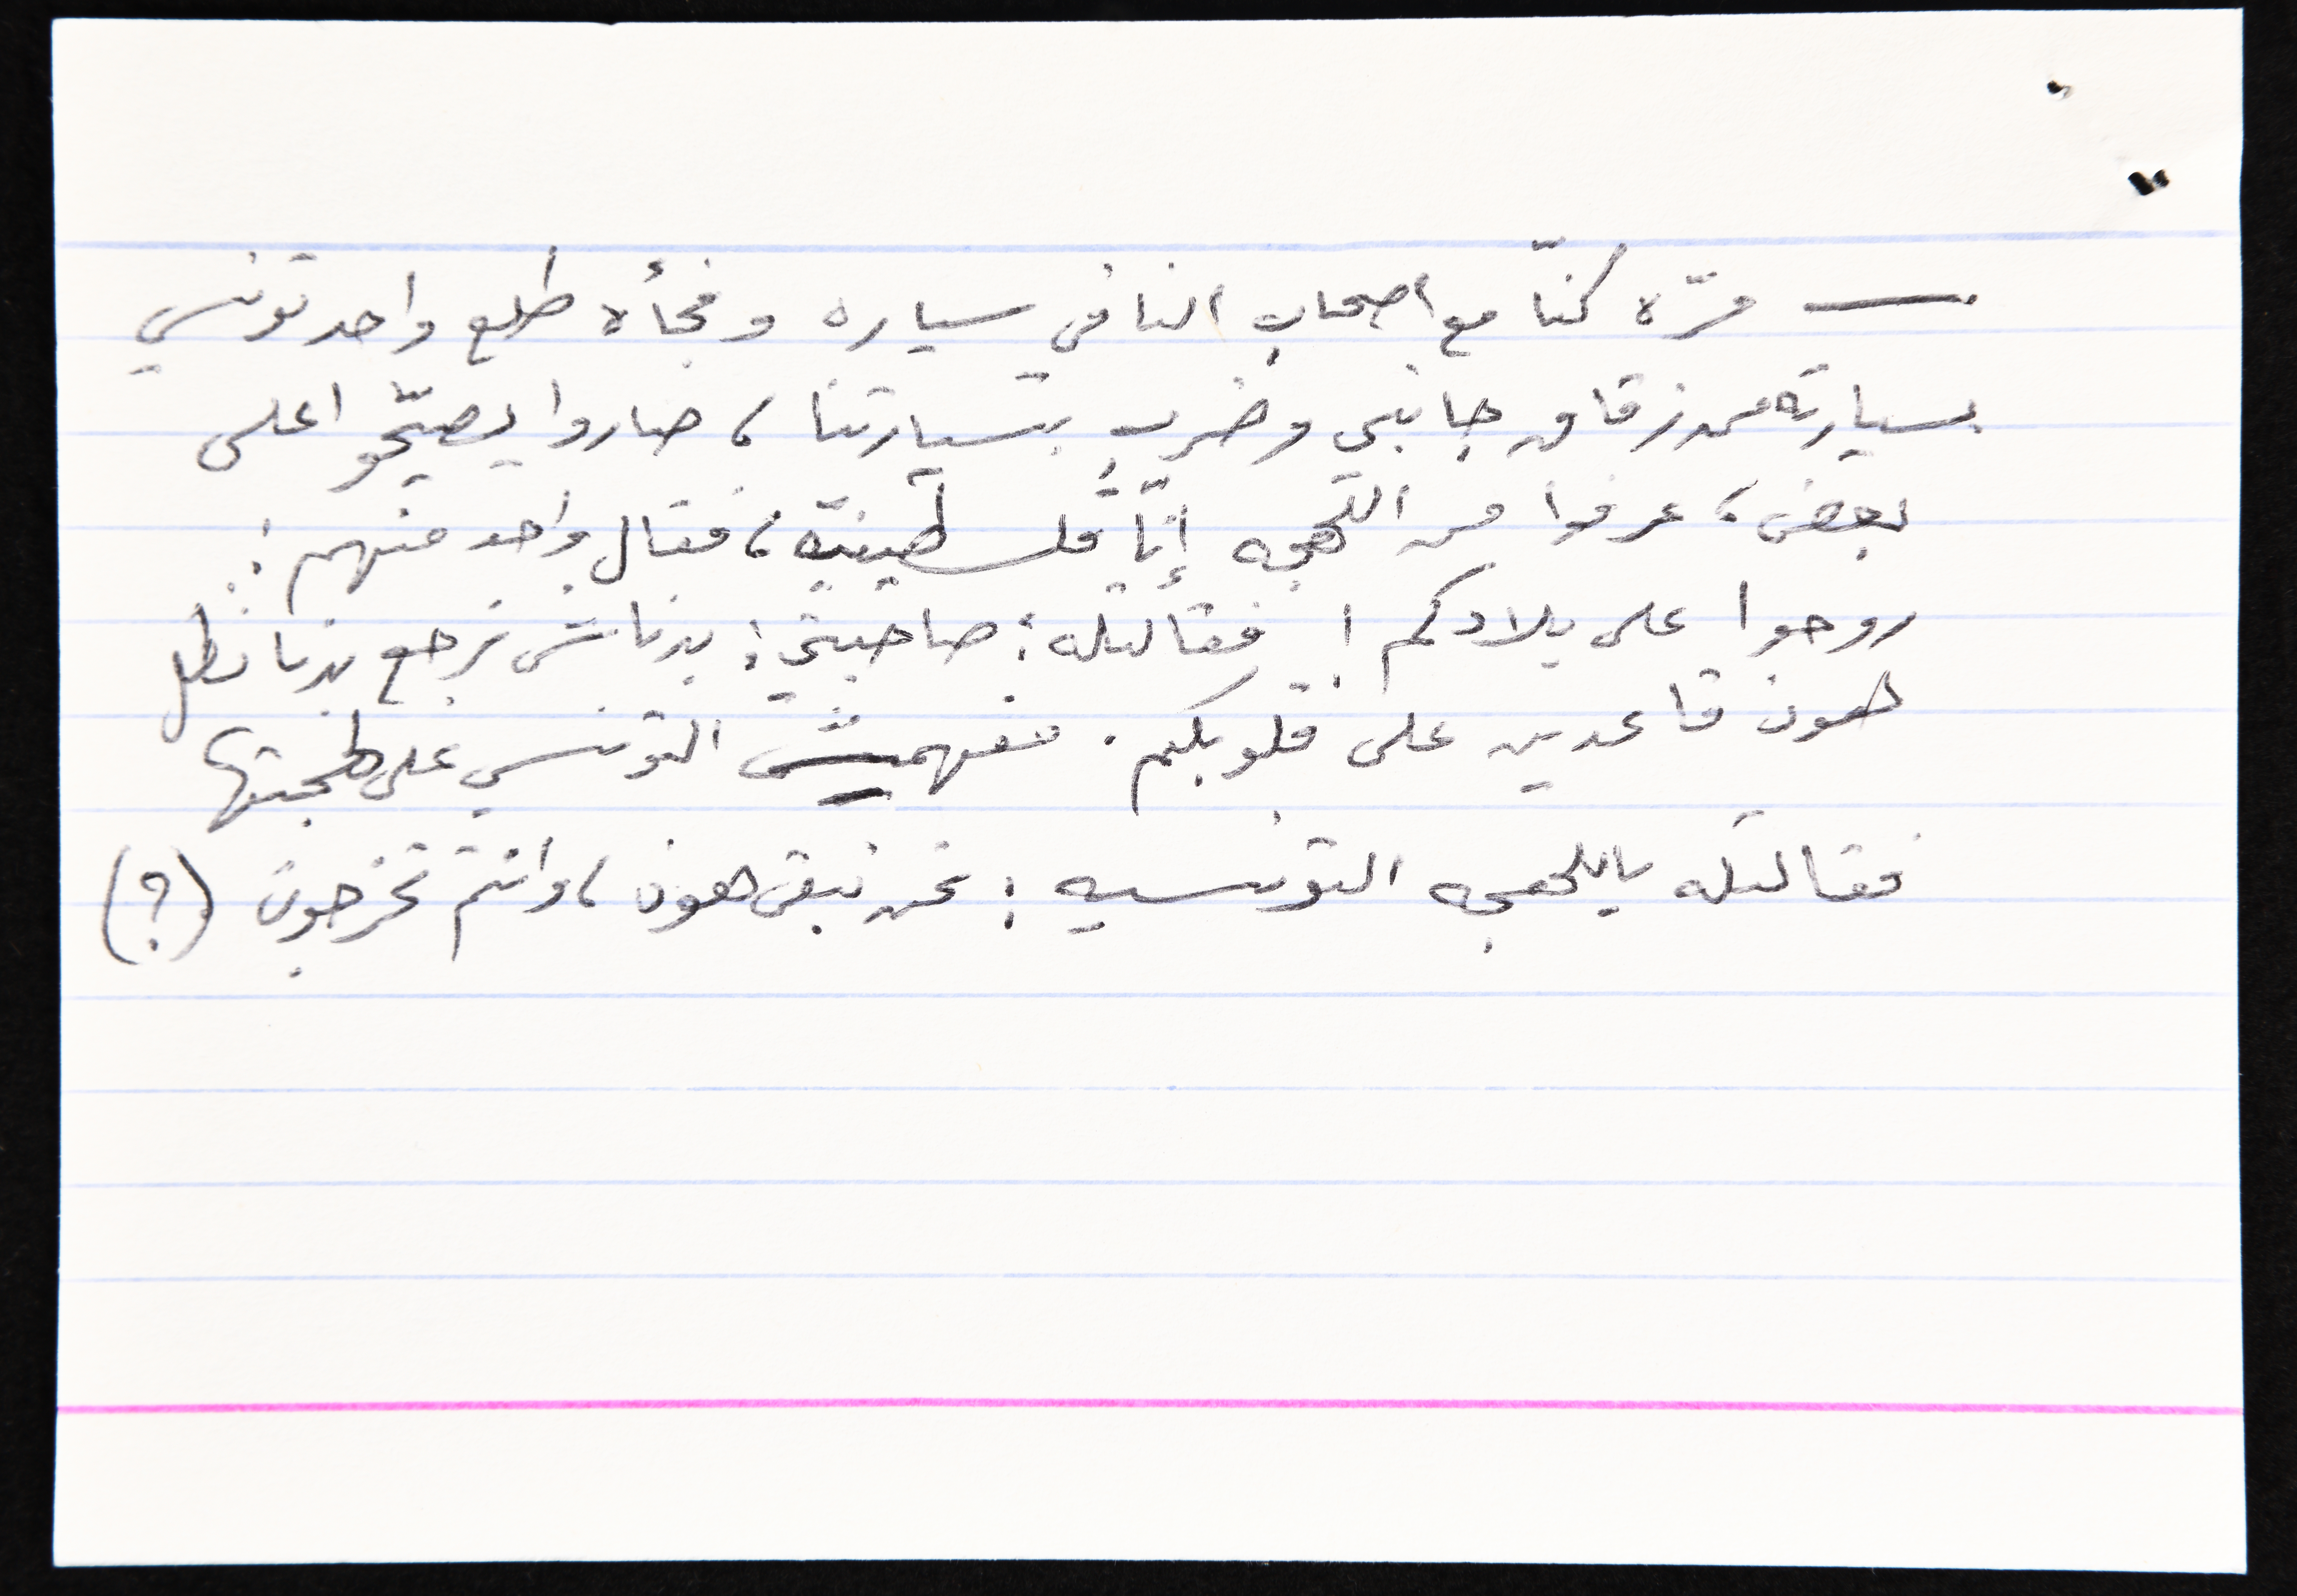 — مرّه كنّا مع اصحاب النا في سياره وفجأه طلع واحد تونسي
بسيارته من زقاق جانبي وضرب بسيارتنا ، صاروا يصيّحوا على
بعض ، عرفوا من اللهجه إنّا فلسطينيّه ، فقال واحد منهم :
روحوا على بلادكم ! فقالتله : صاحبتي : بدناش نرجع بدنا نظل
هون قاعدين على قلوبكم . ففهمش التونسي على لهجتها
فقالتله باللهجه التونسيه : نحن نبقى هون ، وانتم تخرجون (؟)